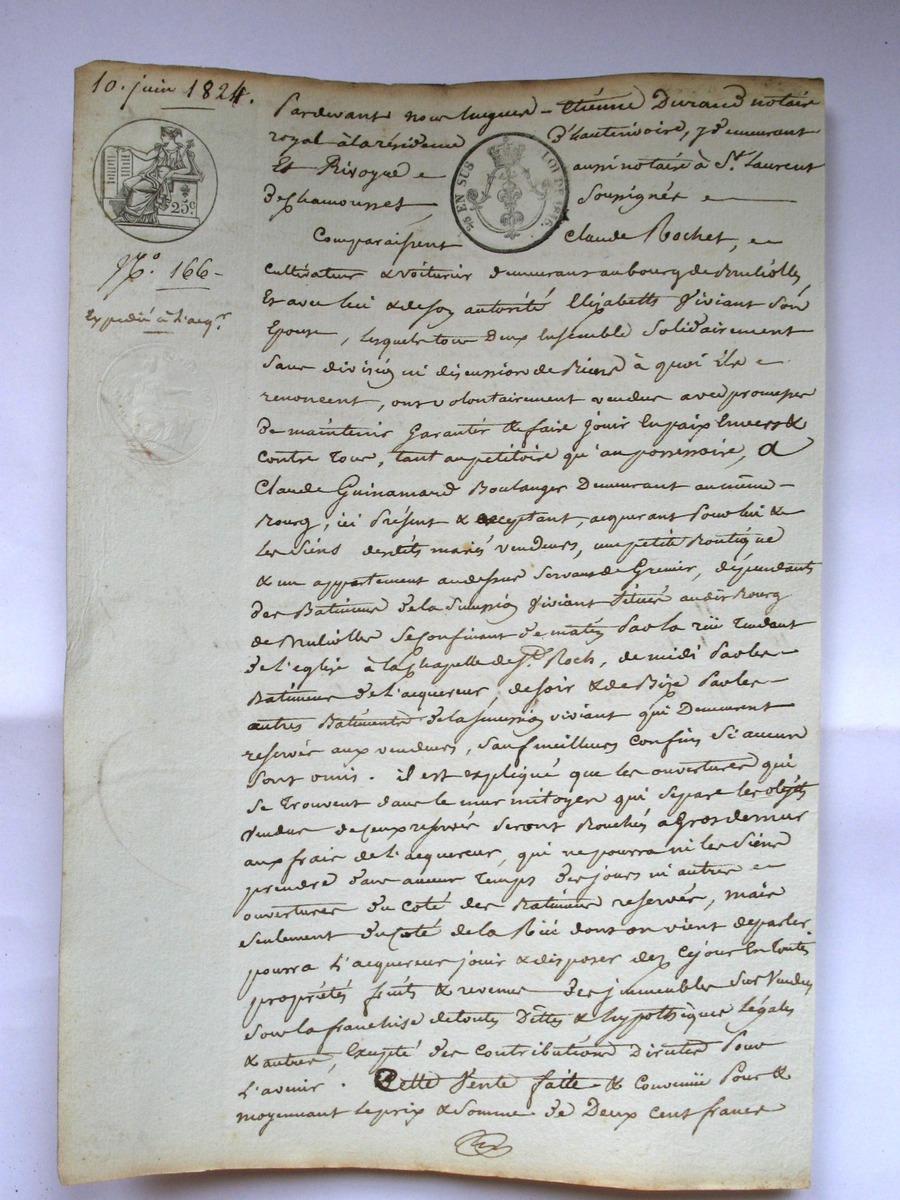 10. juin 1824.
25c
EN SUS LOI DE 1816.
N.o 166
Expedié à l'acqr
Pardevant nous Hugues Etienne Durand notaire
royal à la résidence D'hauterivoire, y demeurant
Et Rivoyre aussi notaire à St. Laurent
de Chamousset Soussignés
Comparaissent Claude Rochet,
Cultivateur & voiturier demeurant au bourg de Brulioles
Et avec lui & de son autorité Elizabeth Viviant Son
Epouse, lesquels tous Deux Ensemble Solidairement
Sans division ni discussion de Biens à quoi Ils
renoncent, ont volontairement vendu avec promesse
De maintenir Garantir & faire jouir En paix Envers &
Contre Tous, tant au petitoire qu'au possessoire, à
Claude Guinamard Boulanger Demeurant au même
Bourg, ici Présent & acceptant, acquerant Pour lui &
Les Siens desdits mariés vendeurs, une petite Boutique
& un appartement au dessus Servant de Grenier, dépendants
des Batiments de la Succession Viviant Situés audit Bourg
de Brulioles Se Confinant de matin Par la rüe Tendant
de l'eglise à la Chapelle de St. Roch, de midi Par les
Batiments de l'acquereur, de soir & de Bize Par les
autres Batiments de la Succession viviant qui Demeurent
reservés aux vendeurs, Sauf meilleurs Confins Si aucuns
Sont omis. il est expliqué que les ouvertures qui
se Trouvent dans le mur mitoyen qui separe les objets
Vendus de Ceux reservés seront Bouchés à Gros de mur
aux frais de l'acquereur, qui ne pourra ni les Siens
prendre dans aucun Temps des jours ni autres
ouvertures du coté des Batiments reservés, mais
seulement du Coté de la Rüe dont on vient de parler,
pourra L'acquereur jouir & disposer dez Cejour En Toutes
propriétés fruits & revenus des immeubles Sus Vendus
Sous la franchise de toutes Dettes & hypothèques Légales
& autres, Excepté des Contributions Directes Pour
L'avenir. Cette Vente faite & Convenüe Pour &
moyennant Le prix & Somme de Deux Cent francs